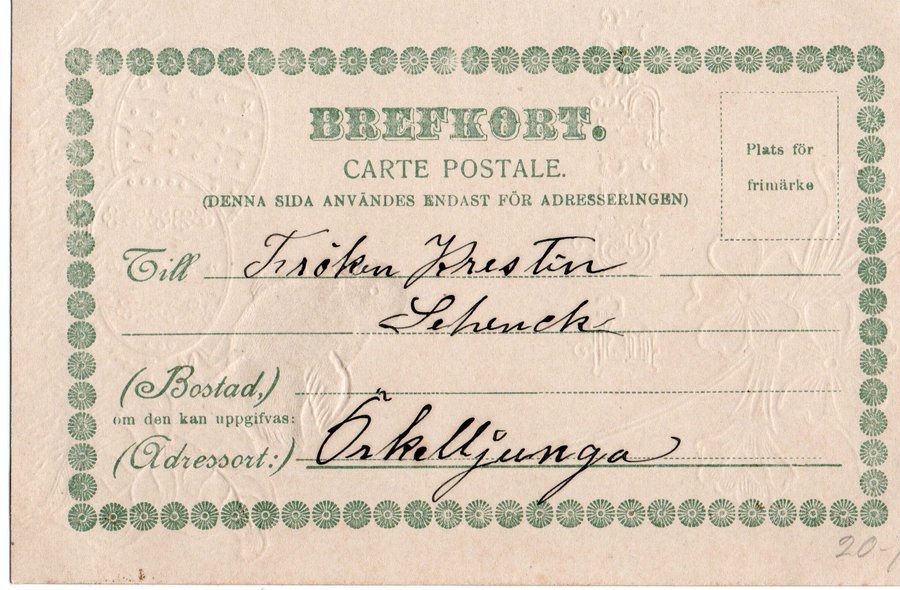 BREFKORT.
CARTE POSTALE.
(DENNA SIDA ANVÄNDES ENDAST FÖR ADRESSERINGEN)
Plats för
frimärke
Till Fröken Krestin
Schenck
(Bostad,)
om den kan uppgifvas:
(Adressort:) Örkelljunga
20-